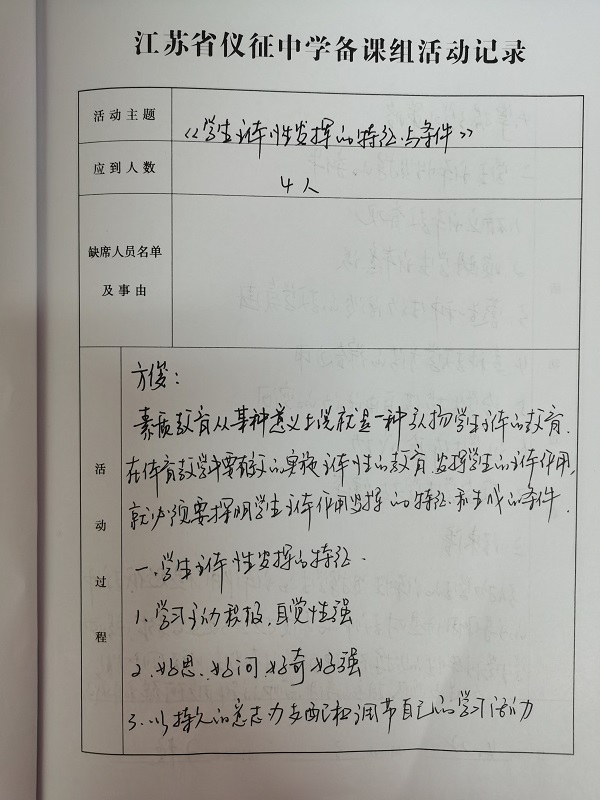 江苏省仪征中学备课组活动记录
活动主题
《学生主体性发挥的特征与条件》
应到人数
4人
缺席人员名单
及事由
活动过程
方俊：
素质教育从某种意义上说就是一种弘扬学生主体的教育.
在体育教学中要有效的实施主体性的教育.发挥学生的主体作用,
就必须要探明学生主体作用发挥的特征和生成的条件.
一.学生主体性发挥的特征.
1.学习主动积极,自觉性强
2.好思、好问、好奇、好强
3.以持久的意志力支配和调节自己的学习活动